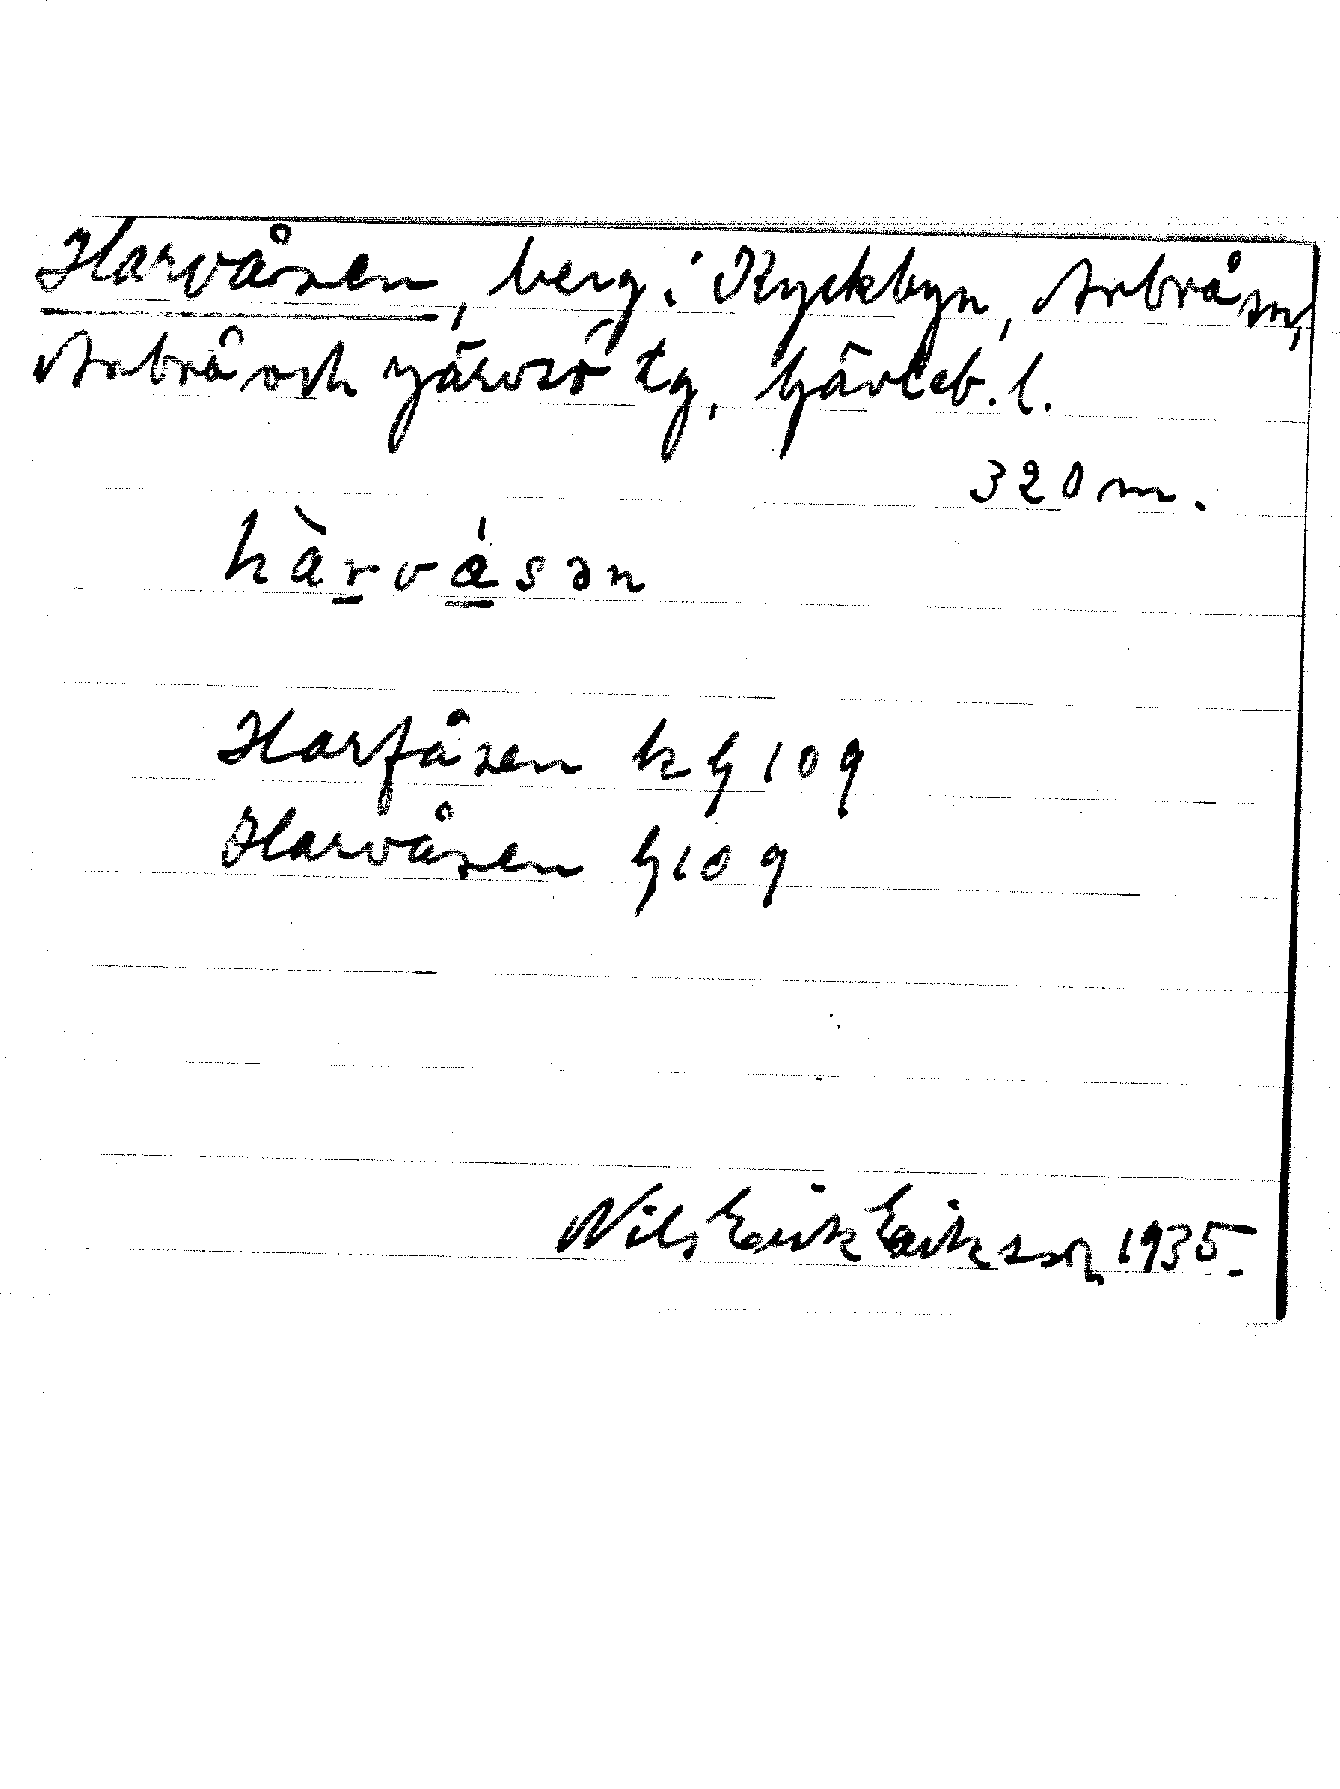 Harvåsen, berg i Kyckbyn, Arbrå sn,
Arbrå och Järvsö tg, Gävleb. l.
320 m.
hàrvåsən
Harfåsen k G 109
Harvåsen G 109
Nils Erik Eriksson 1935.